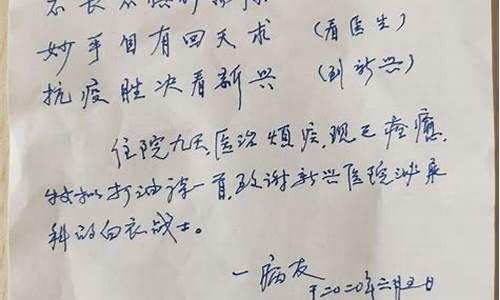 妙手自有回天求 (看医生)
抗疫胜决看新兴 (到新兴)
住院九天,医治烦疾,现已痊癒,
特拟打油诗一首,致谢新兴医院泌尿
科的白衣战士。
一病友
于二〇二〇年二月五日